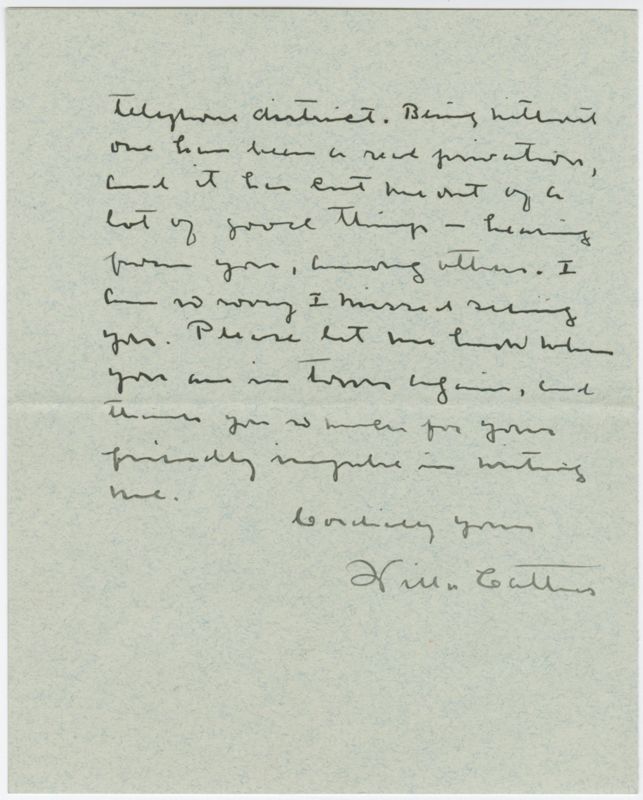 telephone district. Being without
one has been a real privation,
and it has cut me out of a
lot of good things — hearing
from you, among others. I
am so sorry I missed seeing
you. Please let me know when
you are in town again, and
thank you so much for your
friendly impulse in writing
me.
Cordially yours
Willa Cather